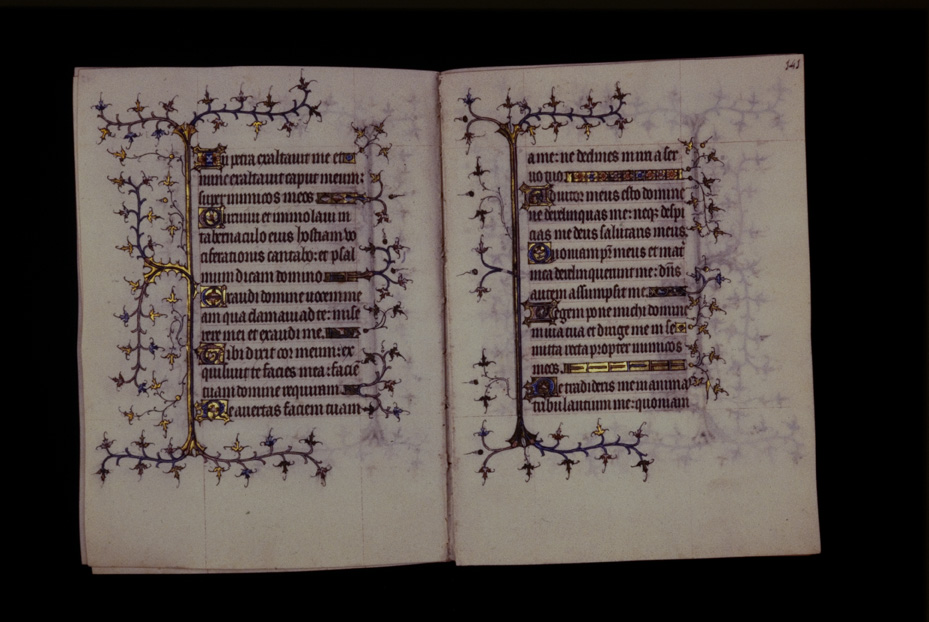 In petra exaltavit me et
nunc exaltavit caput meum:
super inimicos meos
Circuivi et immolavi in
tabernaculo eius hostiam vo
ciferationis cantabo: et psal
mum dicam domino
Exaudi domine vocem me
am qua clamavi ad te: mise
rere mei et exaudi me.
Tibi dixit cor meum: ex
quisivit te facies mea: facie
tuam domine requiram.
Ne avertas faciem tuam
141
a me: ne declines in ira a ser
vo tuo
Adiutor meus esto domine
ne derelinquas me: neq; despi
cias me deus salutaris meus.
Quoniam pr̄ meus et mat̄
mea dereliquerunt me: dn̄s
autem assumpsit me.
Legem pone michi domine
in via tua et dirige me in se
mitta recta propter inimicos
meos.
Ne tradideris me in anima
tribulantium me: quoniam